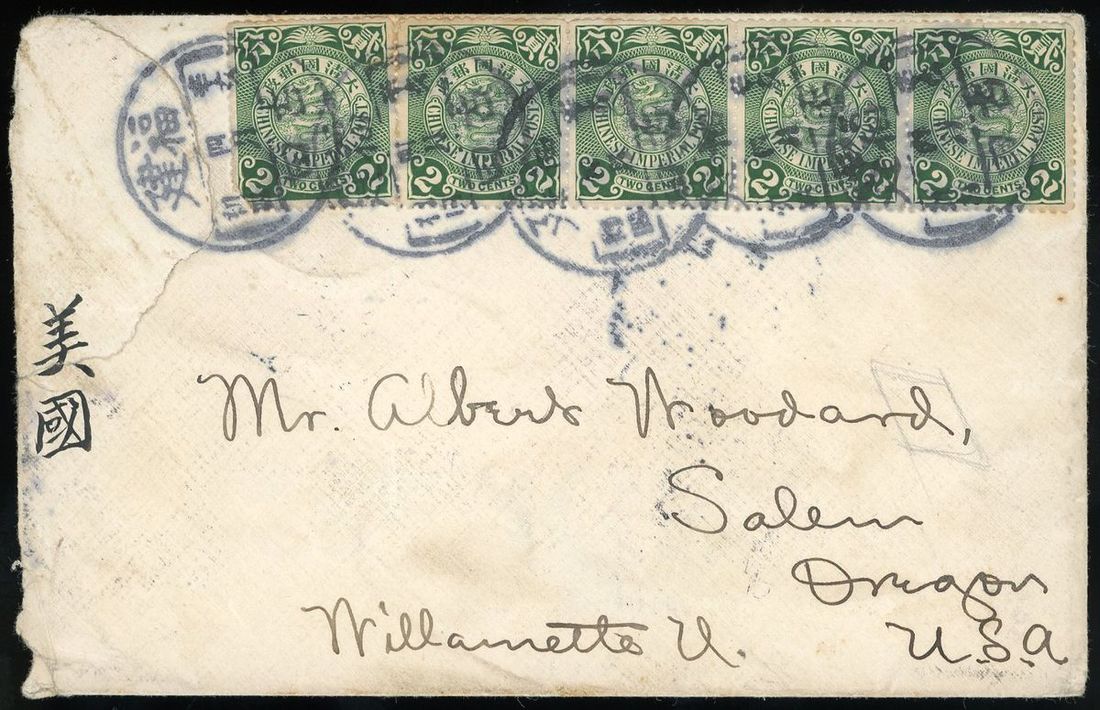 貳分 貳分 貳分 貳分 貳分
大清國郵政 大清國郵政 大清國郵政 大清國郵政 大清國郵政
CHINESE IMPERIAL POST CHINESE IMPERIAL POST CHINESE IMPERIAL POST CHINESE IMPERIAL POST CHINESE IMPERIAL POST
2 TWO CENTS 2 2 TWO CENTS 2 2 TWO CENTS 2 2 TWO CENTS 2 2 TWO CENTS 2
福建
美國
Mr. Albert Woodard,
Salem
Oregon
Willamette U. U.S.A